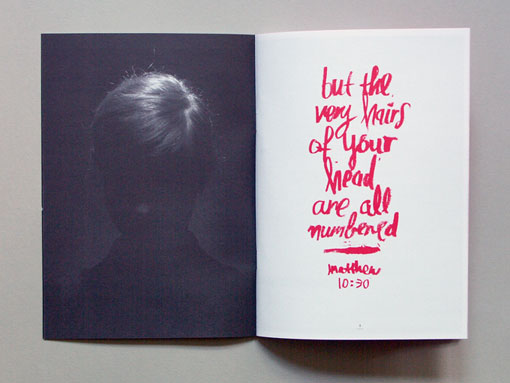 but the
very hairs
of your
head
are all
numbered
matthew
10:30